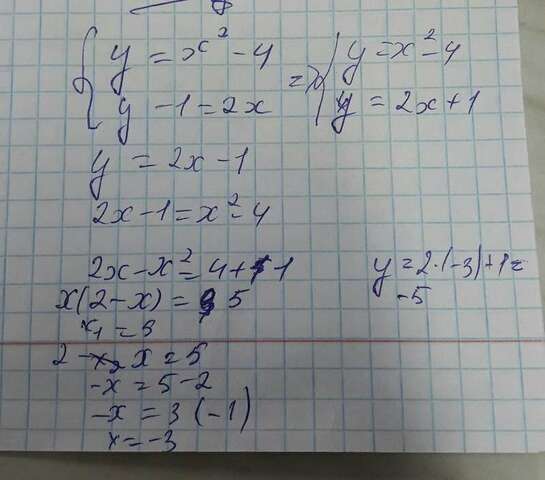 y = x² - 4
y - 1 = 2x
=> y = x² - 4
y = 2x + 1
y = 2x - 1
2x - 1 = x² - 4
2x - x² = 4 + 1
x(2 - x) = 5
x₁ = 5
2 - x = 5
-x = 5 - 2
-x = 3 (-1)
x = -3
y = 2·(-3) + 1 =
-5